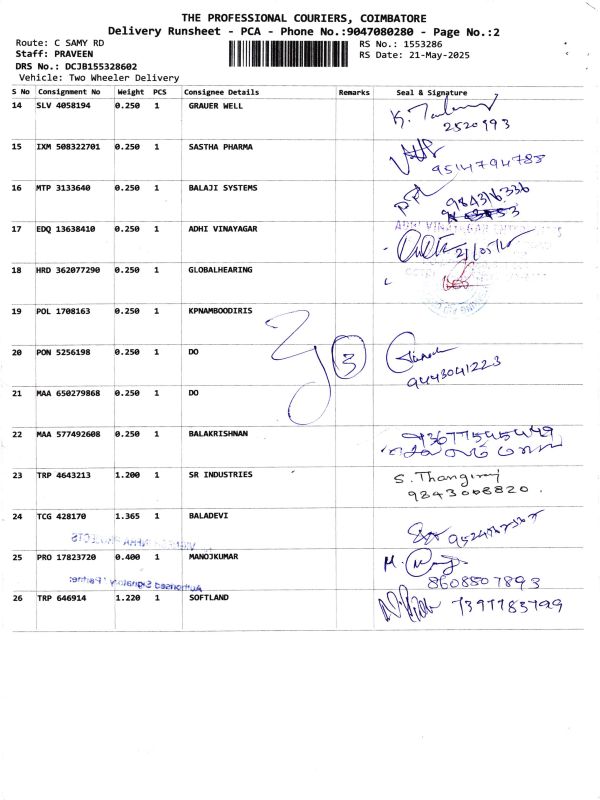 THE PROFESSIONAL COURIERS, COIMBATORE
Delivery Runsheet - PCA - Phone No.:9047080280 - Page No.:2
Route: C SAMY RD
Staff: PRAVEEN
DRS No.: DCJB155328602
Vehicle: Two Wheeler Delivery
RS No.: 1553286
RS Date: 21-May-2025
S No Consignment No Weight PCS Consignee Details Remarks Seal & Signature
14 SLV 4058194 0.250 1 GRAUER WELL
2520993
15 IXM 508322701 0.250 1 SASTHA PHARMA 9514794785
16 MTP 3133640 0.250 1 BALAJI SYSTEMS 984316336
17 EDQ 13638410 0.250 1 ADHI VINAYAGAR 21/05/25
18 HRD 362077290 0.250 1 GLOBALHEARING
19 POL 1708163 0.250 1 KPNAMBOODIRIS
20 PON 5256198 0.250 1 DO 3
9443041223
21 MAA 650279868 0.250 1 DO
22 MAA 577492608 0.250 1 BALAKRISHNAN
23 TRP 4643213 1.200 1 SR INDUSTRIES S. Thangiraj
9843068820.
24 TCG 428170 1.365 1 BALADEVI
25 PRO 17823720 0.400 1 MANOJKUMAR
8608507893
Authorised Signatory / Partner
26 TRP 646914 1.220 1 SOFTLAND 7397783799